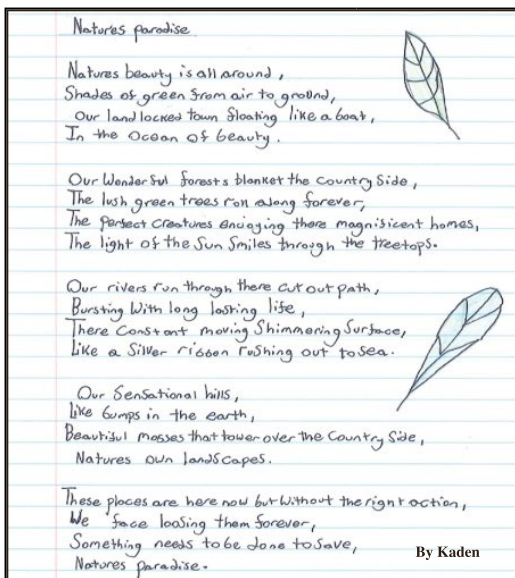 Natures paradise
Natures beauty is all around,
Shades of green from air to ground,
Our land locked town floating like a boat,
In the Ocean of beauty.
Our Wonderful forests blanket the Country Side,
The lush green trees run along forever,
The perfect Creatures enjoying there magnificent homes,
The light of the Sun Smiles through the treetops.
Our rivers run through there cut out path,
Bursting With long lasting life,
There Constant moving Shimmering Surface,
Like a Silver ribbon rushing out to sea.
Our Sensational hills,
Like bumps in the earth,
Beautiful masses that tower over the Country Side,
Natures own landscapes.
These places are here now but Without the right action,
We face loosing them forever,
Something needs to be done to Save,
Natures paradise.
By Kaden